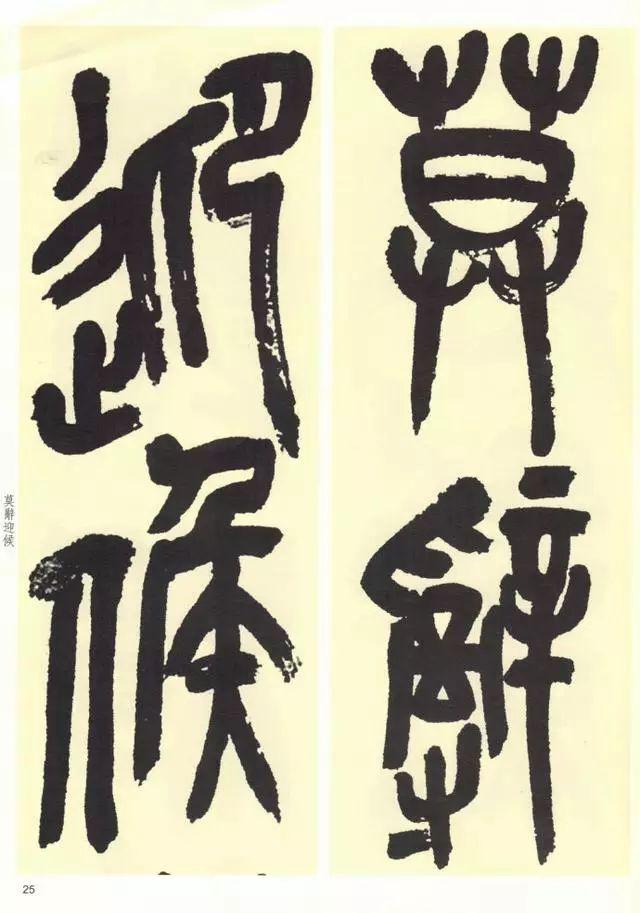 莫辭
迎候
莫辭迎候
25